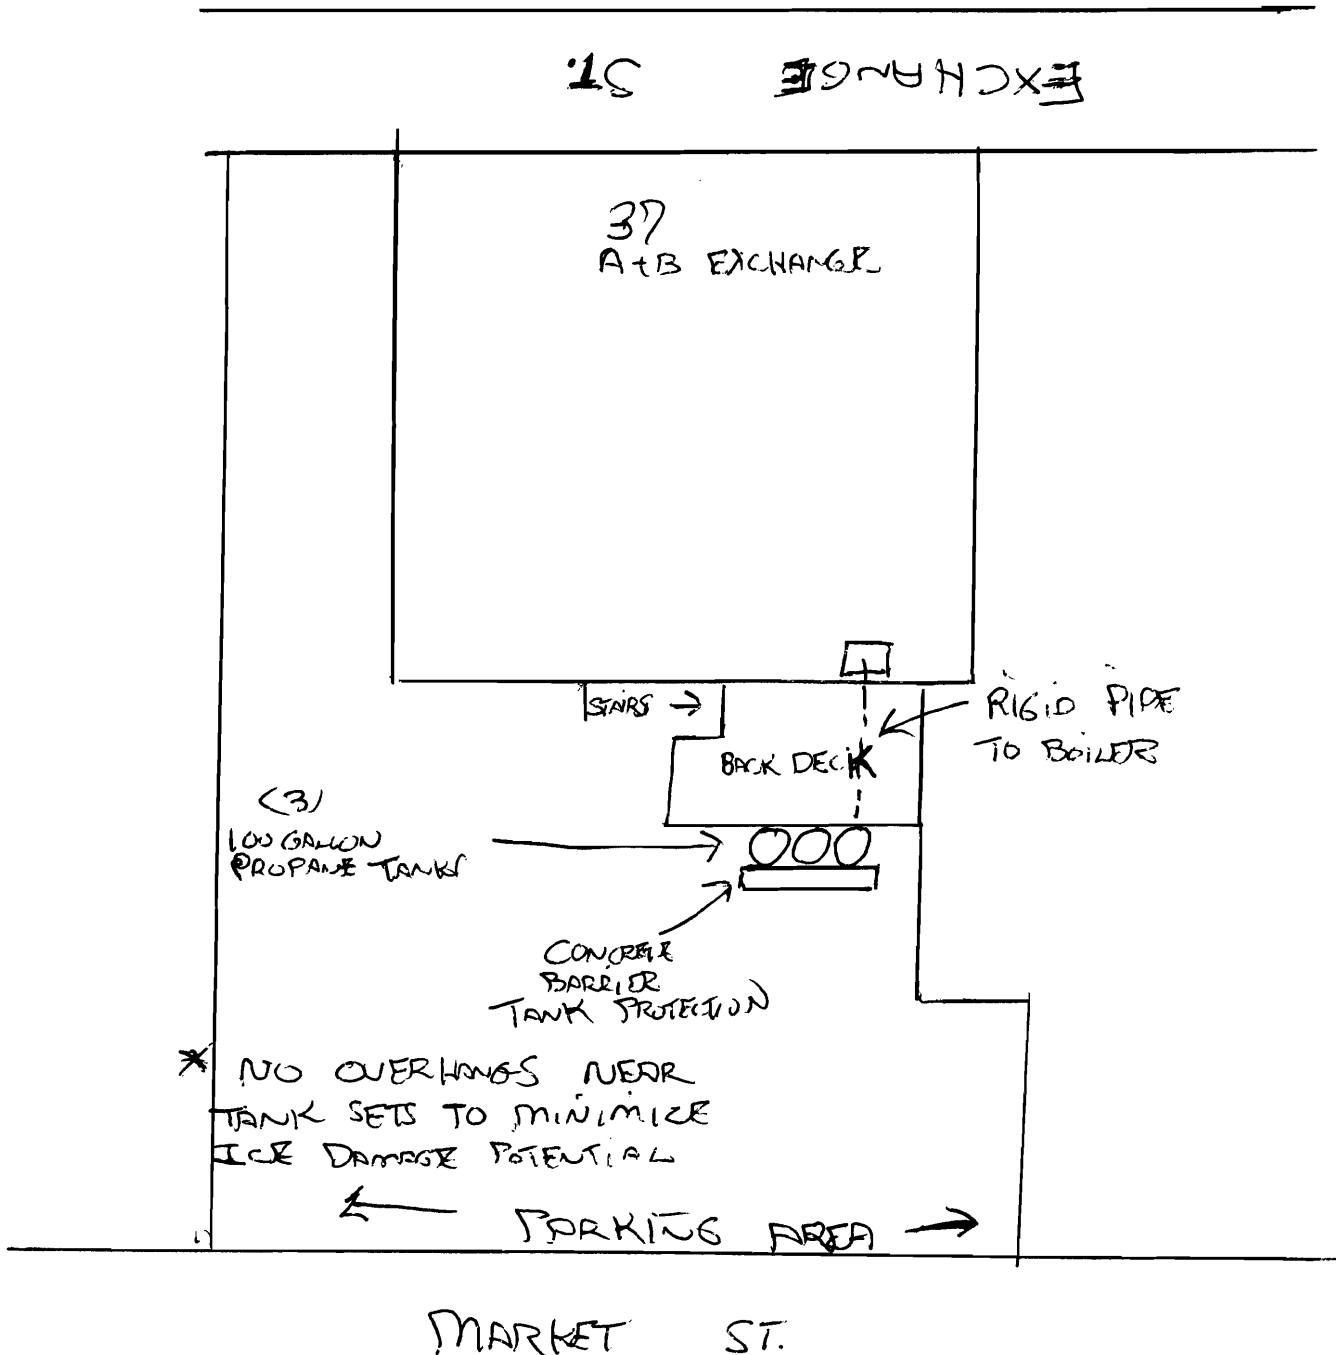 EXCHANGE ST.
37
A+B EXCHANGE
STAIRS
RIGID PIPE
TO BOILER
BACK DECK
(3)
100 GALLON
PROPANE TANKS
CONCRETE
BARRIER
TANK PROTECTION
* NO OVERHANGS NEAR
TANK SETS TO MINIMIZE
ICE DAMAGE POTENTIAL
PARKING AREA
MARKET ST.